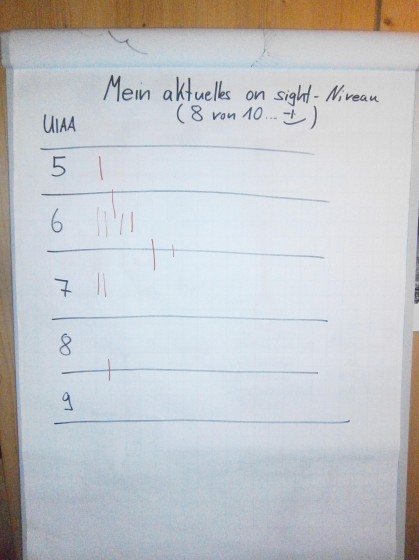 Mein aktuelles on sight-Niveau
(8 von 10... )
UIAA
5
6
7
8
9